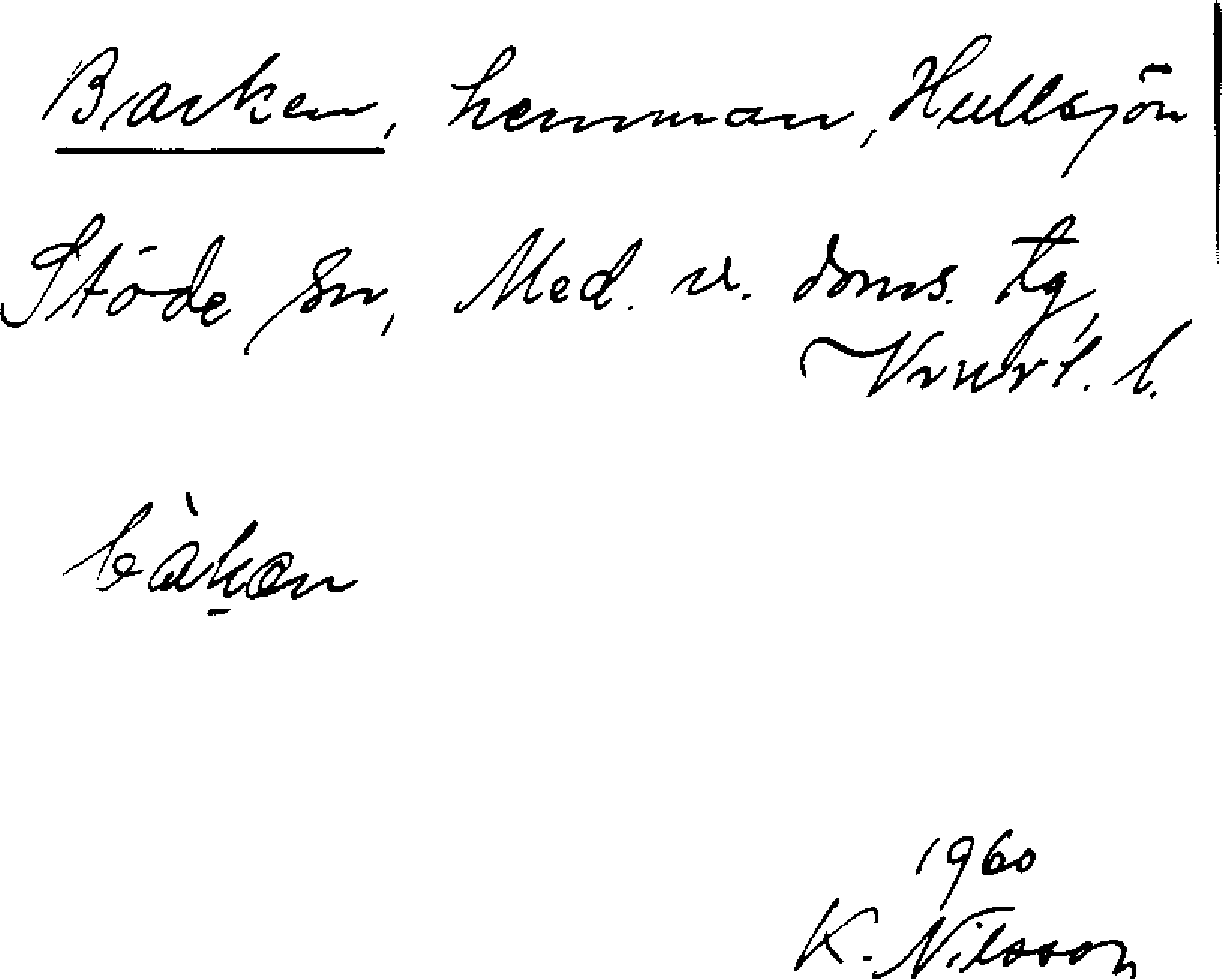 Backen, hemman, Hullsjön
Stöde sn, Med. v. doms. tg,
Vnrl. l.
bàken
1960
K. Nilsson